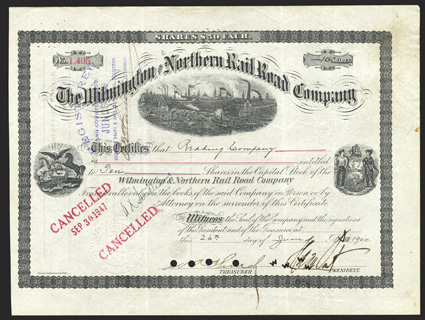 SHARES $50 EACH.
No. 1,495 10 Shares
The Wilmington and Northern Rail Road Company
REGISTERED
This Certifies that Reading Company
is entitled
to Ten Shares in the Capital Stock of the
Wilmington & Northern Rail Road Company
Transferable only on the books of the said Company in Person or by
Attorney on the surrender of this Certificate
CANCELLED
SEP 30 1947
CANCELLED
Witness the Seal of the Company and the signatures
of the President and of the Treasurer at
this 26th day of June 1900
TREASURER. PRESIDENT.